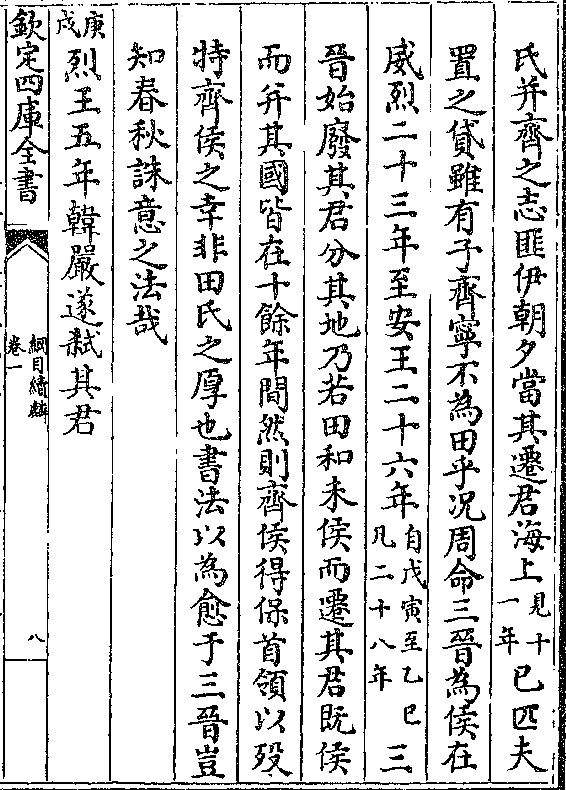 氏并齊之志匪伊朝夕當其遷君海上見十一年已匹夫
置之貸雖有子齊寧不為田乎况周命三晉為侯在
威烈二十三年至安王二十六年自戊寅至乙巳凡二十八年三
晉始廢其君分其地乃若田和未侯而遷其君既侯
而并其國皆在十餘年間然則齊侯得保首領以殁
特齊侯之幸非田氏之厚也書法以為愈于三晉豈
知春秋誅意之法哉
庚戌烈王五年韓嚴遂弑其君
欽定四庫全書
綱目續麟
卷一
八